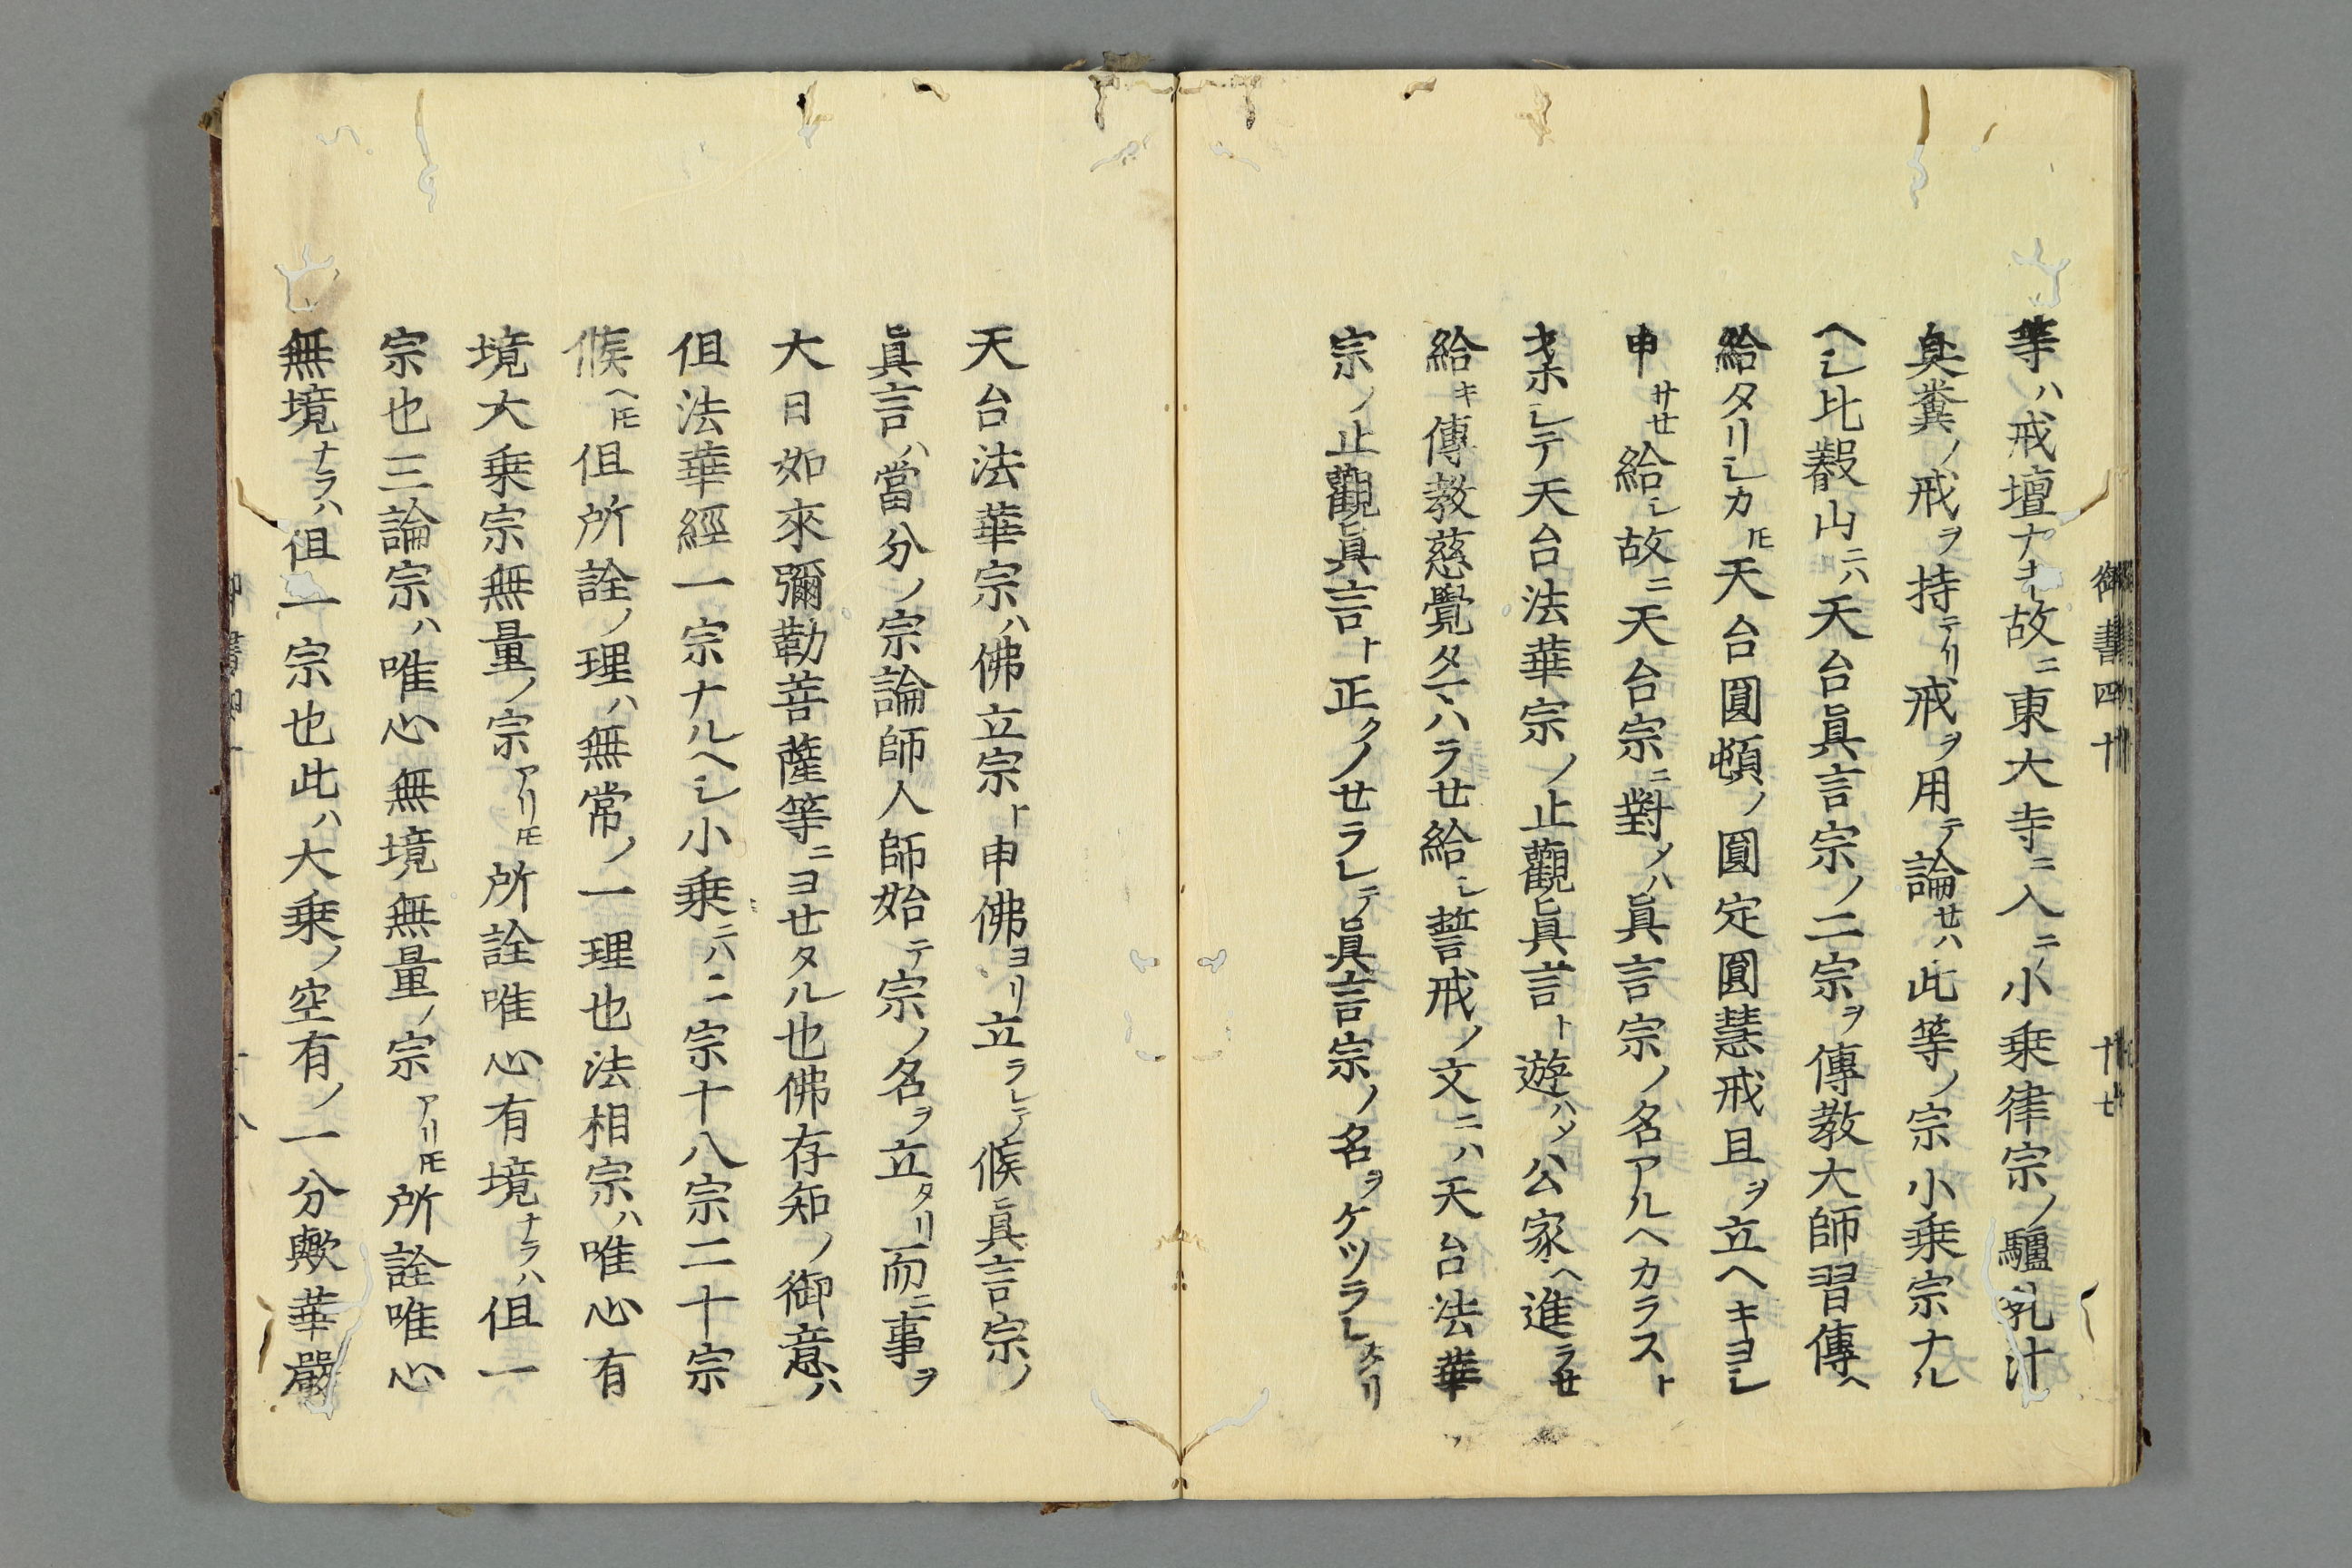 御書四十 十七
等ハ戒壇ナキ故ニ東大寺ニ入テ小乗律宗ノ驢乳汁
臭糞ノ戒ヲ持テリ戒ヲ用テ論セハ此等ノ宗小乗宗ナル
ヘシ比叡山ニハ天台眞言宗ノ二宗ヲ傳教大師習傳ヘ
給タリシカ𪜈天台圓頓ノ圓定圓慧戒且ヲ立ヘキヨシ
申サセ給シ故ニ天台宗ニ對メハ眞言宗ノ名アルヘカラスト
ヲホシテ天台法華宗ノ止觀眞言ト遊ハメ公家ヘ進ラセ
給キ傳教慈覺タマハラセ給シ誓戒ノ文ニハ天台法華
宗ノ止觀眞言ト正クノセラレテ眞言宗ノ名ヲケツラレタリ
天台法華宗ハ佛立宗ト申佛ヨリ立ラレテ候眞言宗ノ
眞言ハ當分ノ宗論師人師始テ宗ノ名ヲ立タリ而ニ事ヲ
大日如來彌勒菩薩等ニヨセタル也佛存知ノ御意ハ
但法華經一宗ナルヘシ小乗ニハ二宗十八宗二十宗
候ヘ𪜈但所詮ノ理ハ無常ノ一理也法相宗ハ唯心有
境大乗宗無量ノ宗アリ𪜈所詮唯心有境ナラハ但一
宗也三論宗ハ唯心無境無量ノ宗アリ𪜈所詮唯心
無境ナラハ但一宗也此ハ大乗ノ空有ノ一分歟華嚴